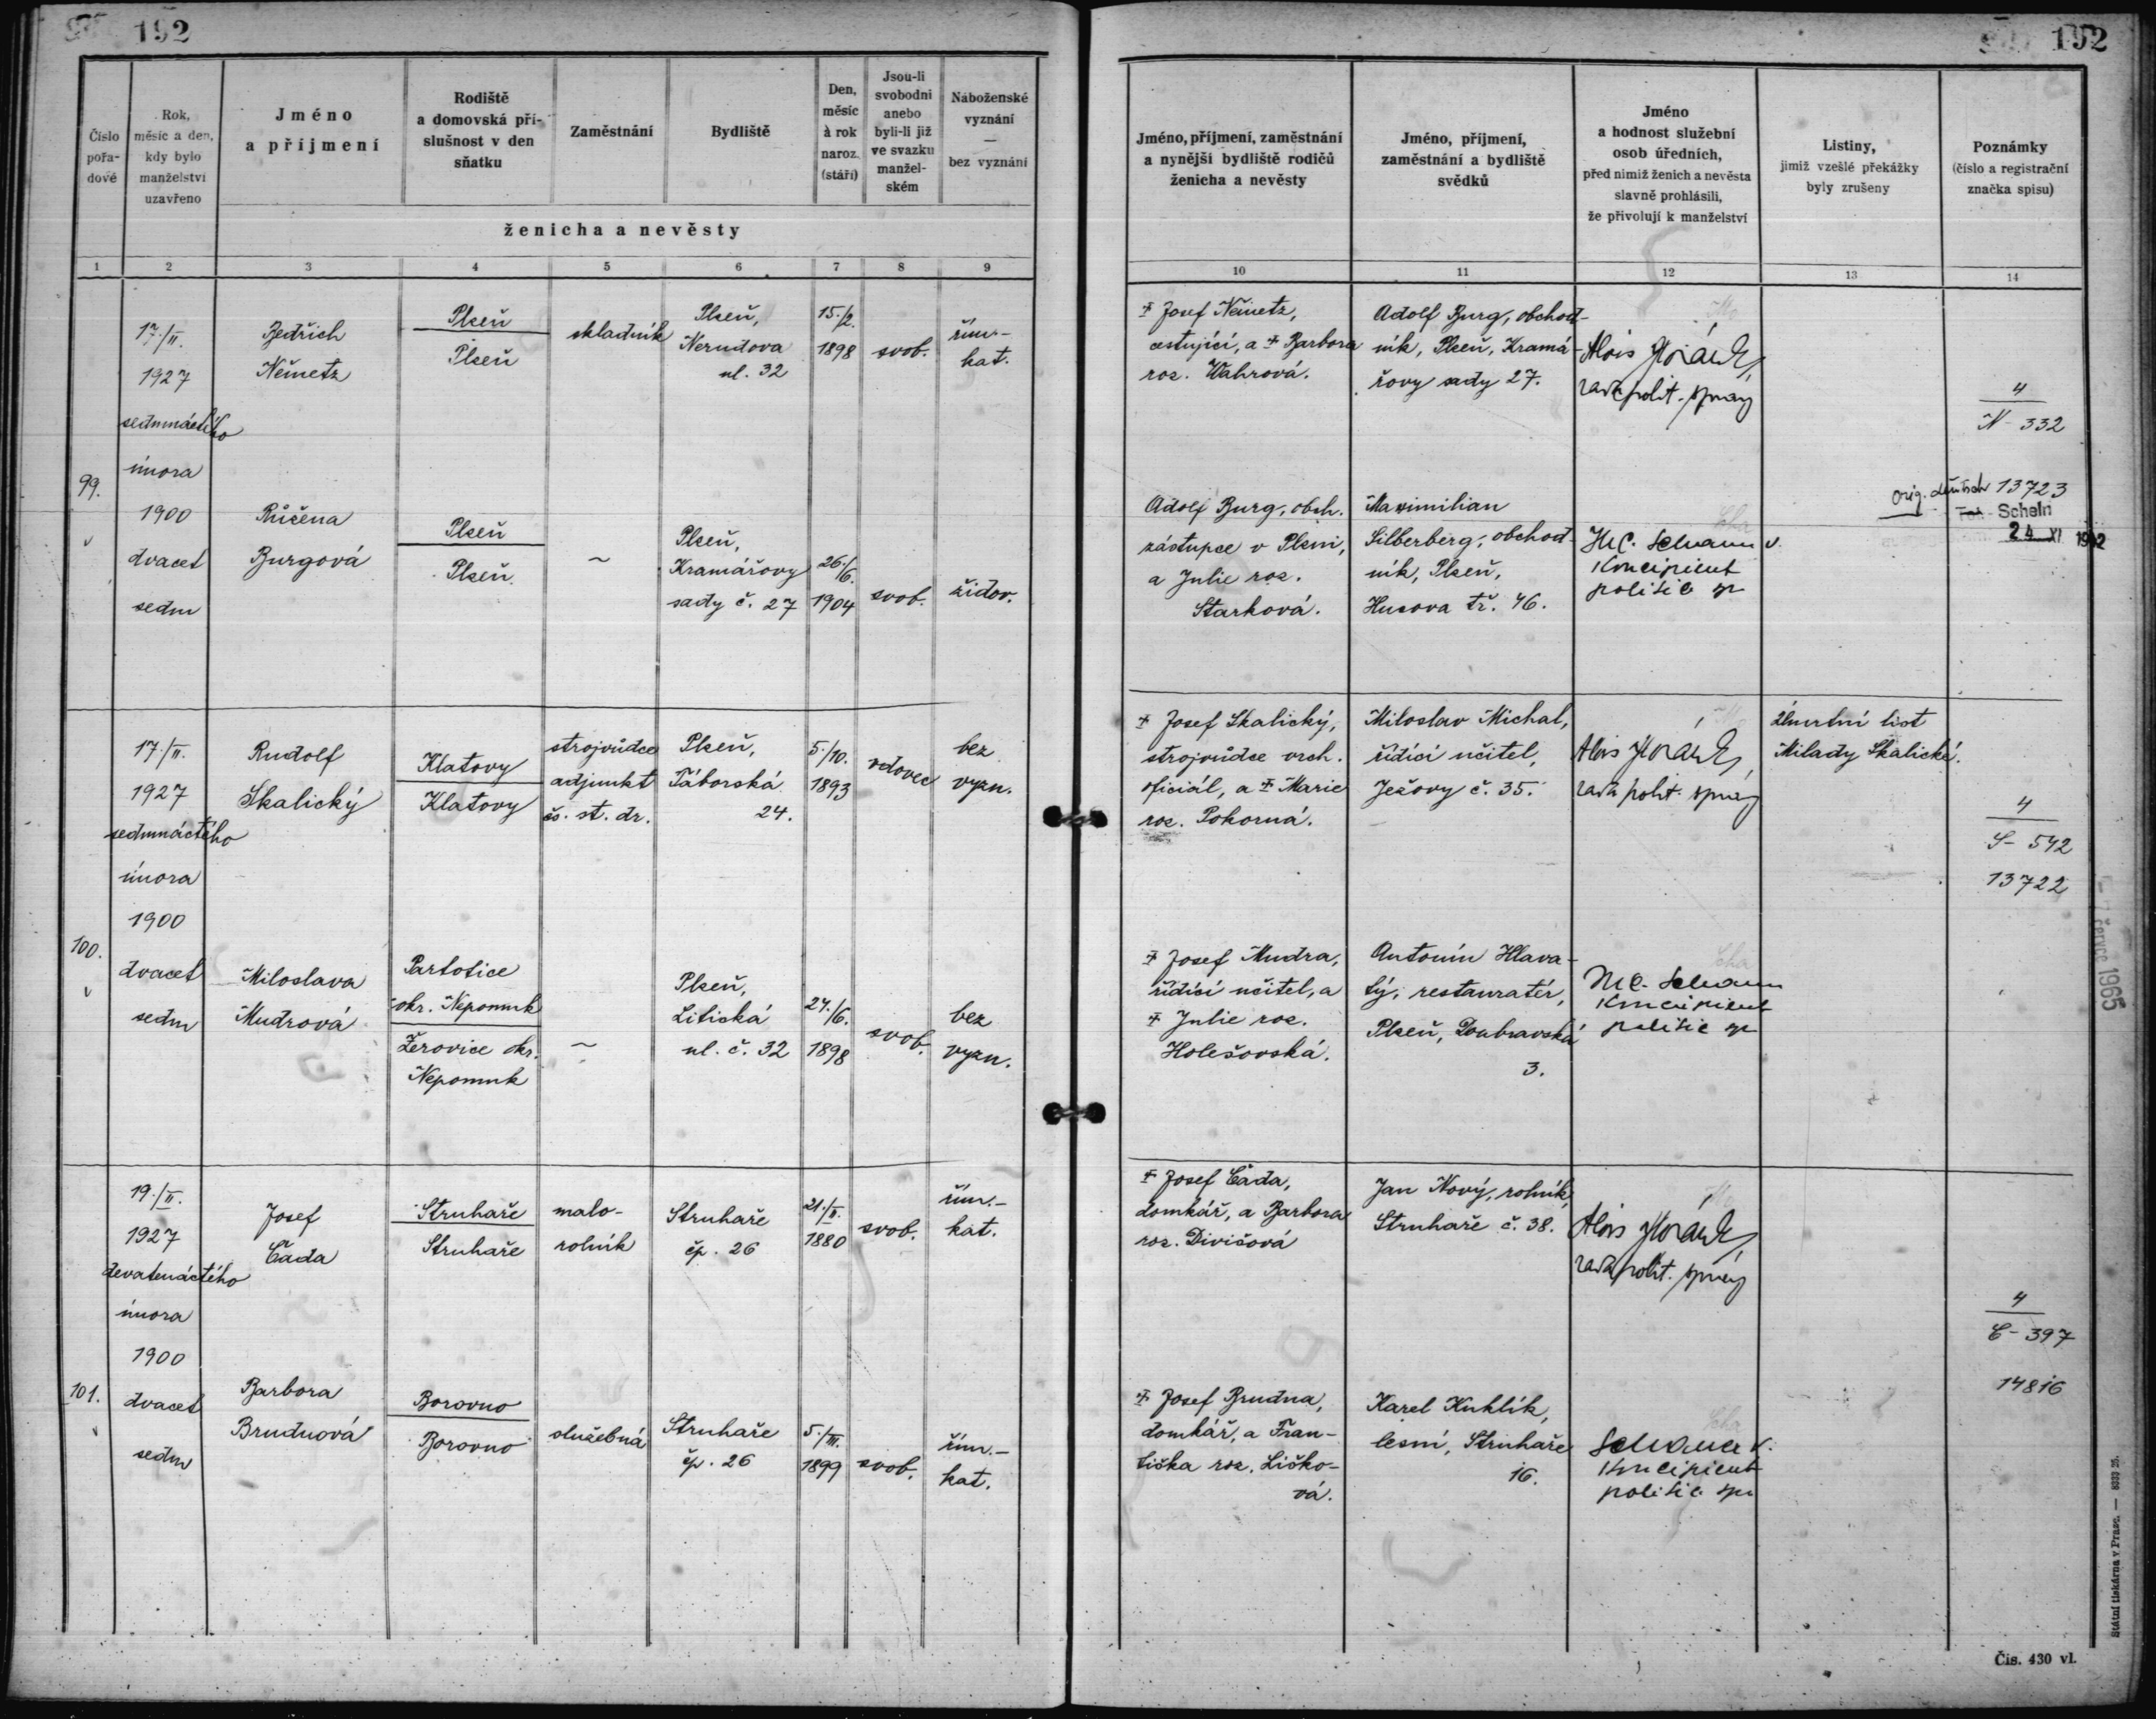 192
192
Číslo pořa-dové
Rok, měsíc a den, kdy bylo manželství uzavřeno
Jméno a příjmení
Rodiště a domovská pří-slušnost v den sňatku
Zaměstnání
Bydliště
Den, měsíc a rok naroz. (stáří)
Jsou-li svobodni anebo byli-li již ve svazku manžel-ském
Náboženské vyznání — bez vyznání
ženicha a nevěsty
Jméno, příjmení, zaměstnání a nynější bydliště rodičů ženicha a nevěsty
Jméno, příjmení, zaměstnání a bydliště svědků
Jméno a hodnost služební osob úředních, před nimiž ženich a nevěsta slavně prohlásili, že přivolují k manželství
Listiny, jimiž vzešlé překážky byly zrušeny
Poznámky (číslo a registrační značka spisu)
1 2 3 4 5 6 7 8 9 10 11 12 13 14
99.
17./II.
1927
sedmnáctého
února
1900
dvacet
sedm
Bedřich
Němetz
Plzeň
Plzeň
skladník
Plzeň,
Nerudova
ul. 32
15./2.
1898
svob.
řím.-
kat.
‡ Josef Němetz,
cestující, a ‡ Barbora
roz. Wahrová.
Adolf Burg, obchod-
ník, Plzeň, Kramá-
řovy sady 27.
Alois Horák,
rada polit. správy
4
N - 332
Růžena
Burgová
Plzeň
Plzeň
~
Plzeň,
Kramářovy
sady č. 27
26./6.
1904
svob.
židov.
Adolf Burg, obch.
zástupce v Plzni,
a Julie roz.
Starková.
Maximilian
Silberberg, obchod-
ník, Plzeň,
Husova tř. 46.
koncipient
politic
13723
orig. deutsch
Schein
24 XI 1942
100.
17./II.
1927
sedmnáctého
února
1900
dvacet
sedm
Rudolf
Skalický
Klatovy
Klatovy
strojvůdce
adjunkt
čs. st. dr.
Plzeň,
Táborská
24.
5./10.
1893
vdovec
bez
vyzn.
‡ Josef Skalický,
strojvůdce vrch.
oficiál, a ‡ Marie
roz. Pokorná.
Miloslav Michal,
řídící učitel,
Ježovy č. 35.
Alois Horák,
rada polit. správy
Úmrtní list
Milady Skalické.
4
S - 542
13722
Miloslava
Mudrová
Partotice
okr. Nepomuk
Žerovice okr.
Nepomuk
~
Plzeň,
Litická
ul. č. 32
27./6.
1898
svob.
bez
vyzn.
‡ Josef Mudra,
řídící učitel, a
‡ Julie roz.
Holešovská.
Antonín Hlava-
tý, restauratér,
Plzeň, Doubravská
3.
koncipient
politic
101.
19./II.
1927
devatenáctého
února
1900
dvacet
sedm
Josef
Čada
Struhaře
Struhaře
malo-
rolník
Struhaře
čp. 26
21./II.
1880
svob.
řím.-
kat.
‡ Josef Čada,
domkář, a Barbora
roz. Divišová
Jan Nový, rolník,
Struhaře č. 38.
Alois Horák,
rada polit. správy
4
Č - 397
14816
Barbora
Brudnová
Borovno
Borovno
služebná
Struhaře
čp. 26
5./III.
1899
svob.
řím.-
kat.
‡ Josef Brudna,
domkář, a Fran-
tiška roz. Liško-
vá.
Karel Kuhlík,
lesní, Struhaře
16.
koncipient
politic
července 1965
Státní tiskárna v Praze. — 8333 25.
Čís. 430 vl.